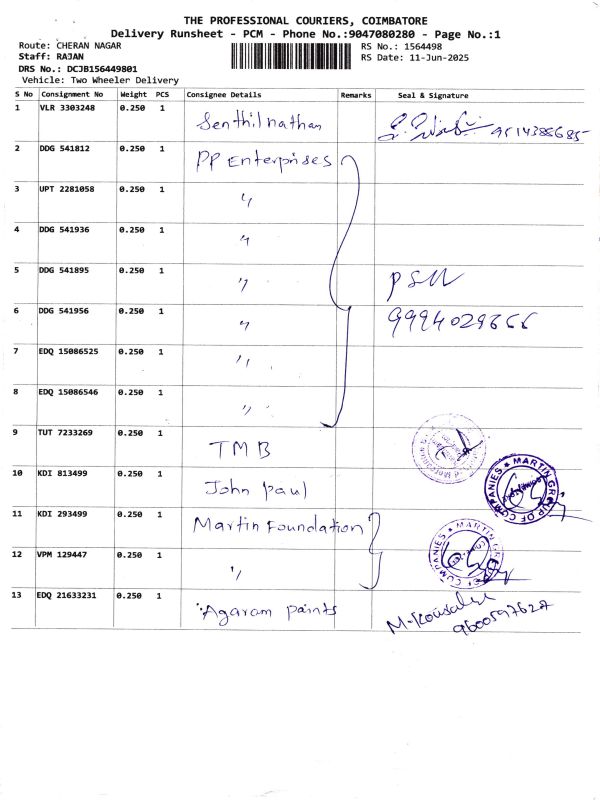 THE PROFESSIONAL COURIERS, COIMBATORE
Delivery Runsheet - PCM - Phone No.:9047080280 - Page No.:1
Route: CHERAN NAGAR
RS No.: 1564498
Staff: RAJAN
RS Date: 11-Jun-2025
DRS No.: DCJB156449801
Vehicle: Two Wheeler Delivery
S No Consignment No Weight PCS Consignee Details Remarks Seal & Signature
1 VLR 3303248 0.250 1 Senthilnathan 9514388685
2 DDG 541812 0.250 1 PP Enterprises
3 UPT 2281058 0.250 1 "
4 DDG 541936 0.250 1 "
5 DDG 541895 0.250 1 "
6 DDG 541956 0.250 1 " 9994029666
7 EDQ 15086525 0.250 1 "
8 EDQ 15086546 0.250 1 "
9 TUT 7233269 0.250 1 TMB
10 KDI 813499 0.250 1 John paul
MARTIN GROUP OF COMPANIES
11 KDI 293499 0.250 1 Martin Foundation
12 VPM 129447 0.250 1 "
13 EDQ 21633231 0.250 1 Agaram paints
9600597627